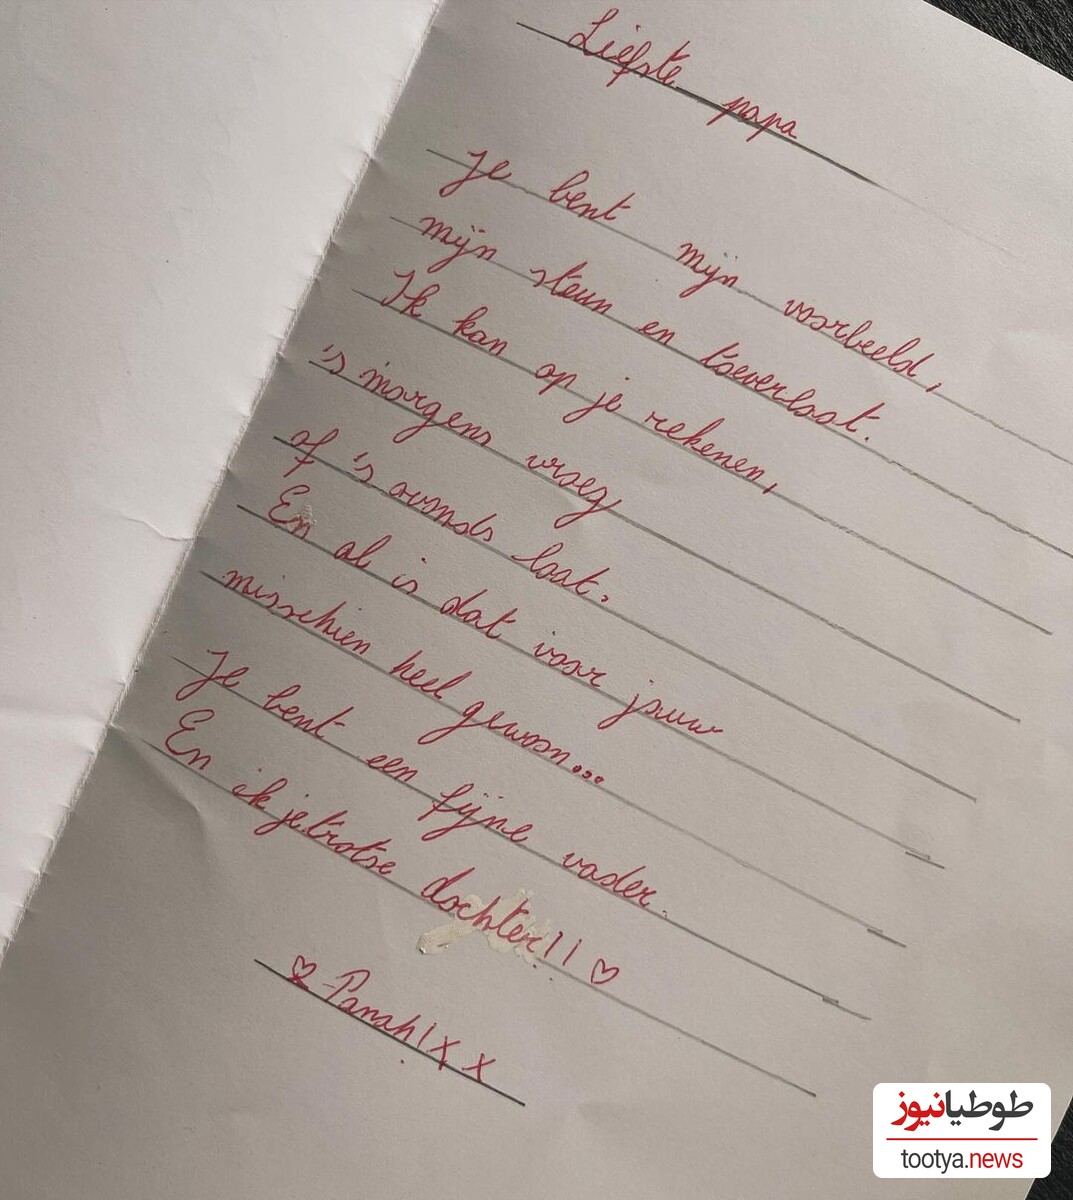 Liefste papa
Je bent mijn voorbeeld,
mijn steun en toeverlaat.
Ik kan op je rekenen,
's morgens vroeg
of 's avonds laat.
En al is dat voor jouw
misschien heel gewoon...
Je bent een fijne vader.
En ik je trotse dochter!! ♡
♡ Panah! x x
طوطیانیوز
tootya.news